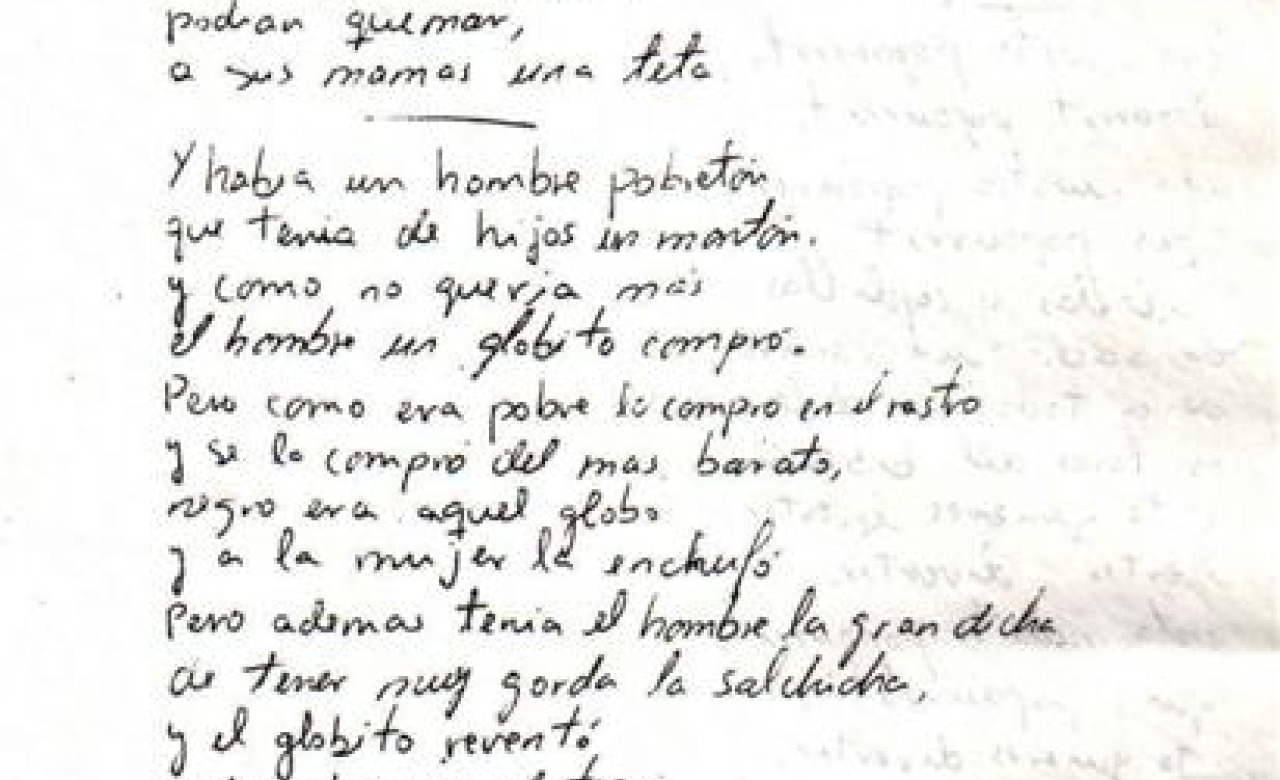 podran quemar,
a sus mamas una teta
Y habia un hombre pobretón
que tenia de hijos un montón.
y como no queria mas
el hombre un globito compró.
Pero como era pobre lo compro en el rastro
y se lo compró del mas barato,
negro era aquel globo
y a la mujer la enchufó
Pero ademas tenia el hombre la gran dicha
de tener muy gorda la salchicha,
y el globito reventó